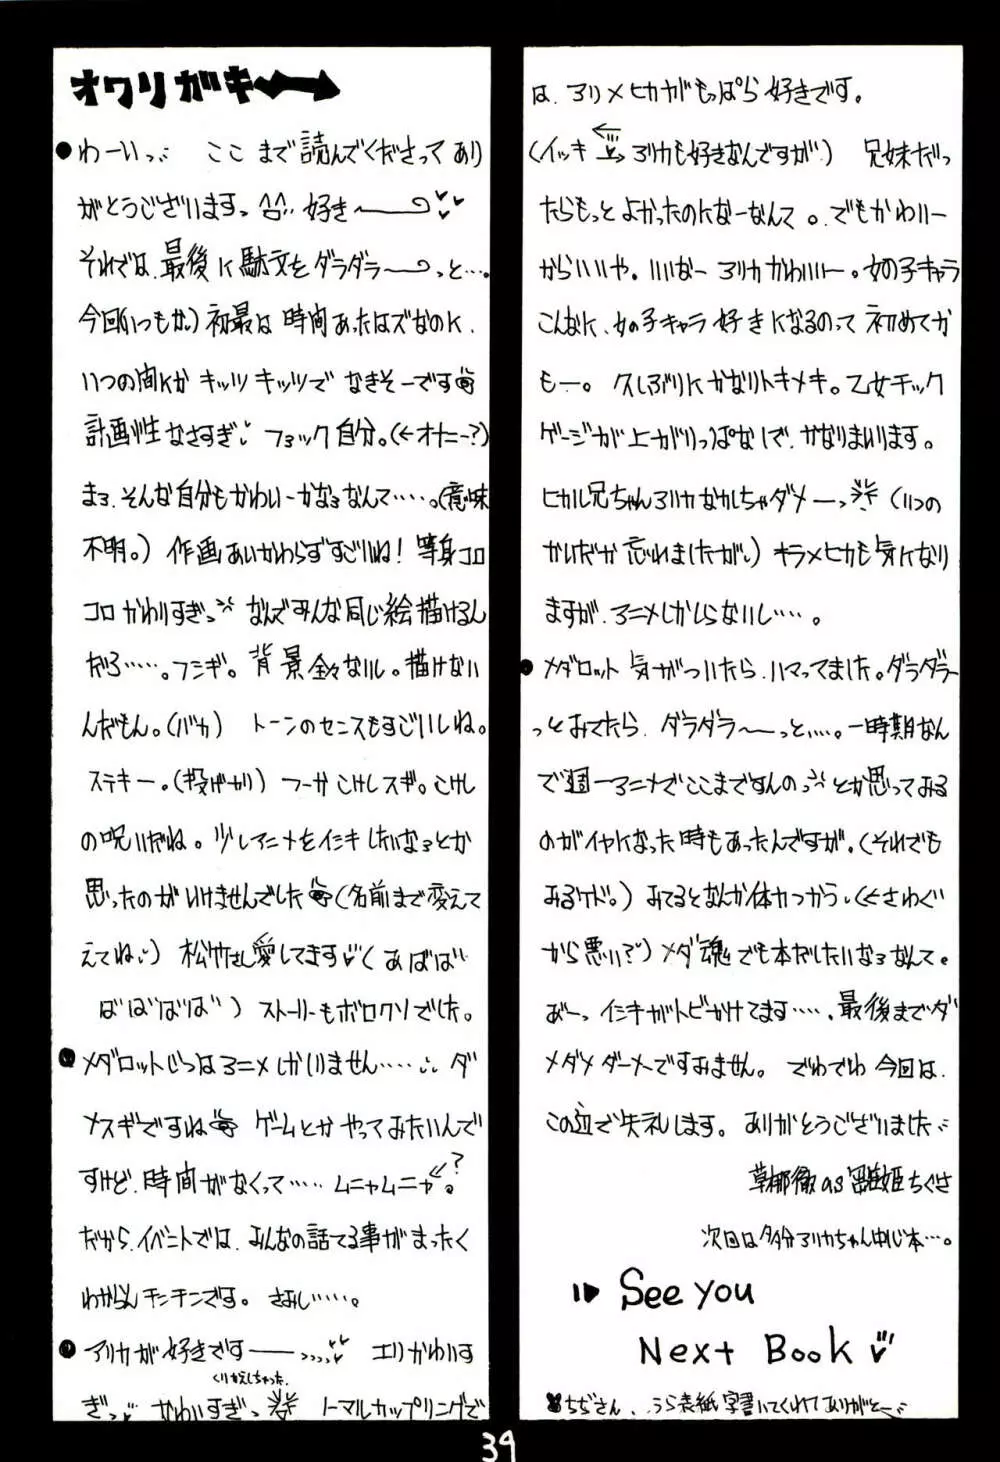 オワリガキ
●わーいっ ここまで読んでくださってあり
がとうございますっ 好き〜
それでは、最後に駄文をダラダラ〜っと…。
今回(いつもか。)初最は時間あったはズなのに、
いつの間にか キッツキッツで なきそーです
計画性なさすぎ フェック自分。(←オナニー?)
まぁ、そんな自分もかわいーかなぁなんて……。(意味
不明。) 作画あいかわらずすごいね! 等身コロ
コロかわりすぎっ なんでみんな同じ絵描けるん
だろ……。フシギ。背景全々ないし。描けない
んだもん。(バカ) トーンのセンスもすごいしね。
ステキー。(投げやり) フーか こけしスギ。こけし
の呪いだね。少しアニメをイシキしたいなぁとか
思ったのがいけませんでした (名前まで変えて
えてね) 松竹さん愛してます (あばば
ばばばば) ストーリーもボロクソでした。
●メダロットじつはアニメしかしりません…… ダ
メスギですね ゲームとか やってみたいんで
すけど、時間がなくって…… ムニャムニャ。?
だから、イベントでは、みんなの話てる事がまったく
わからんチンチンです。さみし……。
●アリカが好きですー エリかわいす
くりかえしちゃった。
ぎっ かわいすぎっ ノーマルカップリングで
は、アリ×ヒカがもっぱら好きです。
(イッキ アリカも好きなんですが) 兄妹だっ
たらもっとよかったのになーなんて。でもかわいー
からいいや。いいなー アリカかわいいー。女の子キャラ
こんなに、女の子キャラ 好きになるのって 初めてか
もー。久しぶりに かなりトキメキ。乙女チック
ゲージが上がりっぱなしで、かなりまいります。
ヒカル兄ちゃんアリカなかしちゃダメーっ (いつの
かいだか忘れましたが。) キラメヒカも気になり
ますが、アニメしかしらないし……。
●メダロット 気がついたら、ハマってました。ダラダラー
っとみてたら、ダラダラ〜っと……。一時期なん
で週一アニメでここまですんのっ とか思ってみる
のがイヤになった時もあったんですが、(それでも
みるケド。) みてるとなんか体力つかう。(←さわぐ
から悪い?) メダ魂でも本だしたいなぁなんて。
あーっ イシキがトビかけてます……、最後までダ
メダメダーメですみません。でわでわ 今回は、
この辺で失礼します。ありがとうございました
草郁徹as雛姫ちぐさ
次回は多分アリカちゃん中心本…。
See you
Next Book
ちぢさん、、うら表紙字書いてくれてありがとー
39